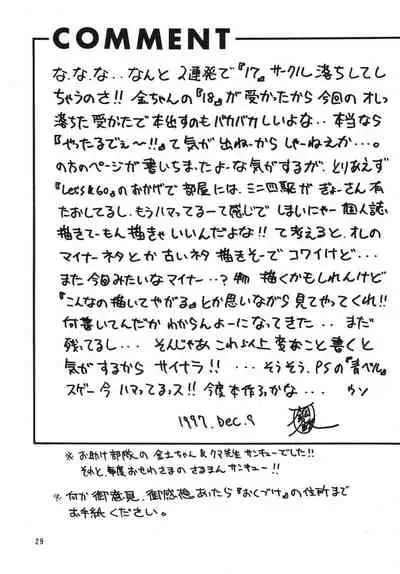 COMMENT
な、な、な、‥なんと 2連発で『17』サークル落ちしてし
ちゃうのさ!! 金ちゃんの『18』が受かったから今回のオレっ
落ちた受かたで本出すのもバカバカしいよな‥本当なら
『やったるでぇ〜!!』て気が出ねーからしゃーねぇか…。
の方のページが書いちまったよーな気がするが、とりあえず
『Let's&Go』のおかげで部屋には、ミニ四駆がぎょーさん有
たおしてるし、もうハマってるーて感じでしまいにゃー個人誌
描きてーもん描きゃいいんだよな!!て考えると、オレの
マイナーネタとか古いネタ描きそーでコワイけど…
また今回みたいなマイナー‥?物描くかもしれんけど
『こんなの描いてやがる』とか思いながら見てやってくれ!!
何書いてんだかわからんよーになってきた‥まだ
残ってるし… そんじゃあこれ以上変なこと書くと
気がするからサイナラ!! …そうそう、PSの『青ベル』
スゲー今ハマってるっス!!今度本作ろかな… ウソ
1997.Dec.9
※お助け部隊の金土ちゃん&クマ先生サンキューでした!!
それと、毎度おせわさまのさるまんサンキュー!!
※何か御意見、御感想あったら『おくづけ』の住所まで
お手紙ください。
29